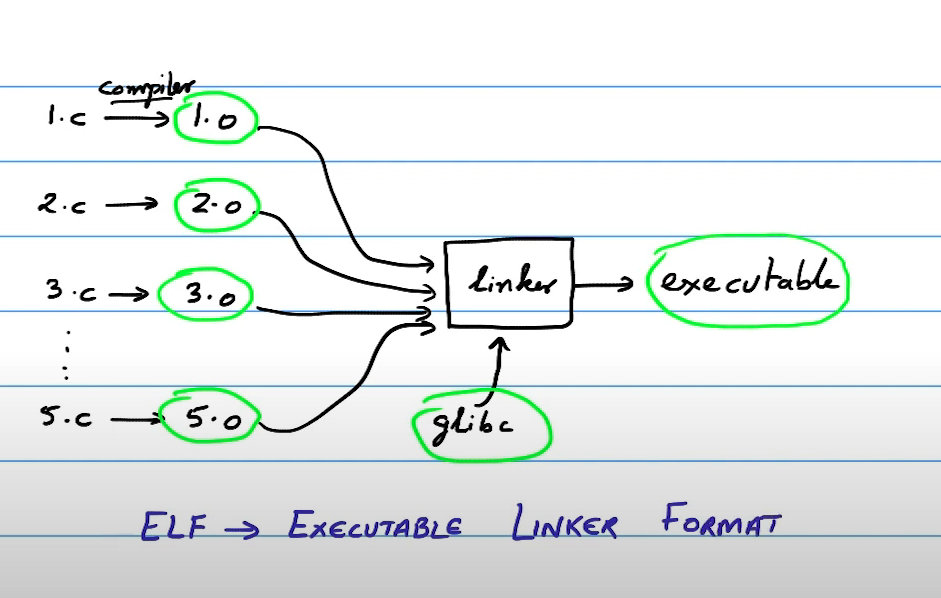 compiler
1.c → 1.o
2.c → 2.o
3.c → 3.o
linker → executable
5.c → 5.o
glibc
ELF → EXECUTABLE LINKER FORMAT